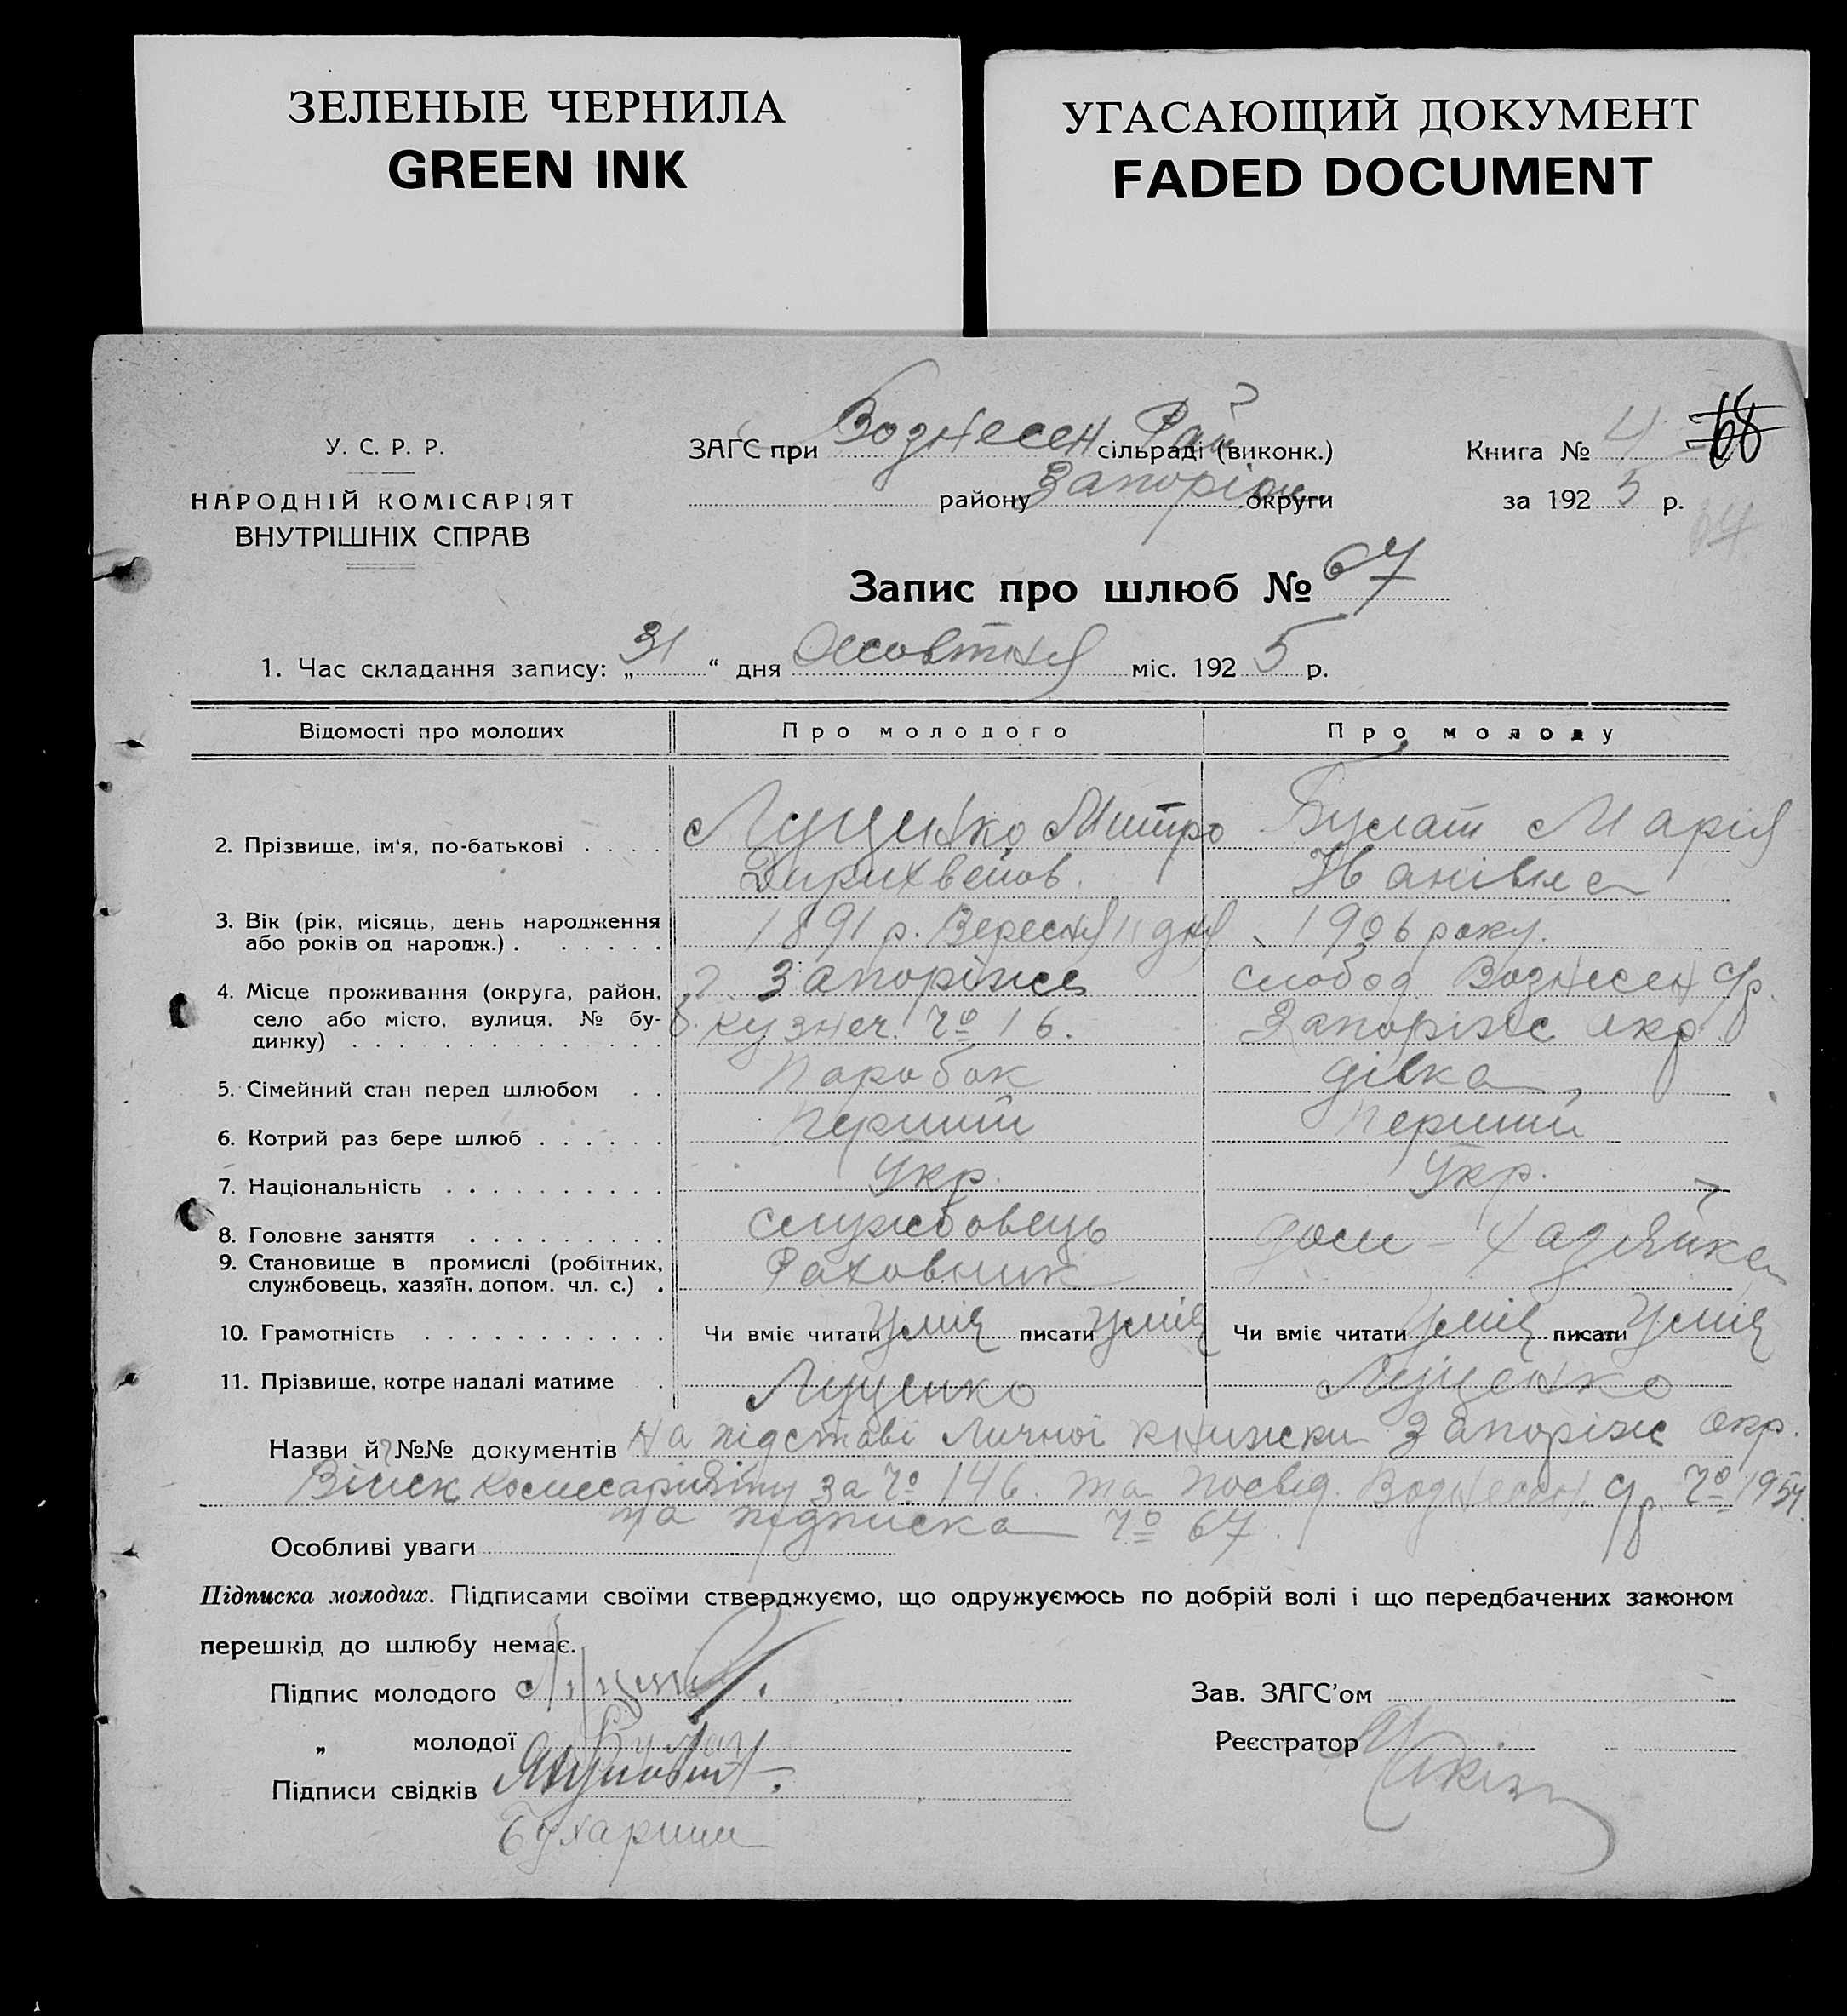 ЗЕЛЕНЫЕ ЧЕРНИЛА
GREEN INK
УГАСАЮЩИЙ ДОКУМЕНТ
FADED DOCUMENT
У. С. Р. Р.
НАРОДНІЙ КОМІСАРІЯТ
ВНУТРІШНІХ СПРАВ
ЗАГС при Вознесен Рай сільраді (виконк.)
району Запоріж округи
Книга № 4 68
за 1925 р.
64
Запис про шлюб № 67
1. Час складання запису: „31“ дня Жовтня міс. 1925 р.
Відомості про молодих Про молодого Про молоду
2. Прізвище, ім'я, по-батькові . . . . Луценко Митро Булат Марія
Іванівна
3. Вік (рік, місяць, день народження
або років од народж.) . . . . . . 1891 р. Вересня 11 дня 1906 року.
4. Місце проживання (округа, район, г. Запоріжжє слобод Вознесен С/р.
село або місто, вулиця, № будинку) кузнеч. № 16. Запоріжс окр.
5. Сімейний стан перед шлюбом . . Паробок дівка
6. Котрий раз бере шлюб . . . . . . Перший Перший
7. Національність . . . . . . . . . . Укр. Укр.
8. Головне заняття . . . . . . . . . службовець дом-хазяйка
9. Становище в промислі (робітник,
службовець, хазяїн, допом. чл. с.) . Раховник
10. Грамотність . . . . . . . . . . . Чи вміє читати Уміє писати Уміє Чи вміє читати Уміє писати Уміє
11. Прізвище, котре надалі матиме . Луценко Луценко
Назви й №№ документів На підставі личної книжки Запоріж окр.
Війск комиссаріяту за № 146. та посвід. Вознесен. С/р. № 1954.
та підписка № 67.
Особливі уваги
Підписка молодих. Підписами своїми стверджуємо, що одружуємось по добрій волі і що передбачених законом
перешкід до шлюбу немає.
Підпис молодого
Зав. ЗАГС'ом
„ молодої Булат
Реєстратор
Підписи свідків